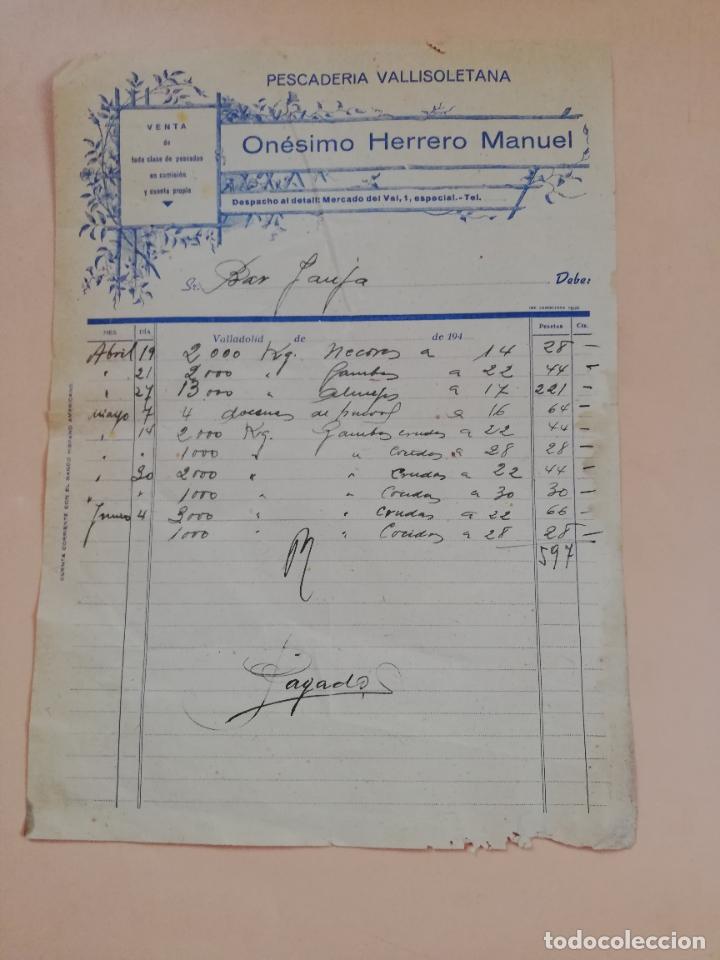 PESCADERIA VALLISOLETANA
VENTA
de
toda clase de pescados
en comisión
y cuenta propia
Onésimo Herrero Manuel
Despacho al detall: Mercado del Val, 1, especial.-Tel.
Sr. Bar Debe:
MES DÍA Valladolid de de 194 Pesetas Cts.
Abril 19 2000 Kg. necoras a 14 28 -
" 21 2000 " Gambas a 22 44 -
" 27 13000 " almejas a 17 221 -
Mayo 7 4 docenas de a 16 64 -
" 14 2000 Kg. Gambas crudas a 22 44 -
" " 1000 " " cocidas a 28 28 -
" 30 2000 " " crudas a 22 44 -
" " 1000 " " a 30 30 -
Junio 4 3000 " " crudas a 22 66 -
1000 " " Cocidas a 28 28 -
597
Pagado
CUENTA CORRIENTE CON EL BANCO HISPANO AMERICANO
todocoleccion
todocoleccion.net